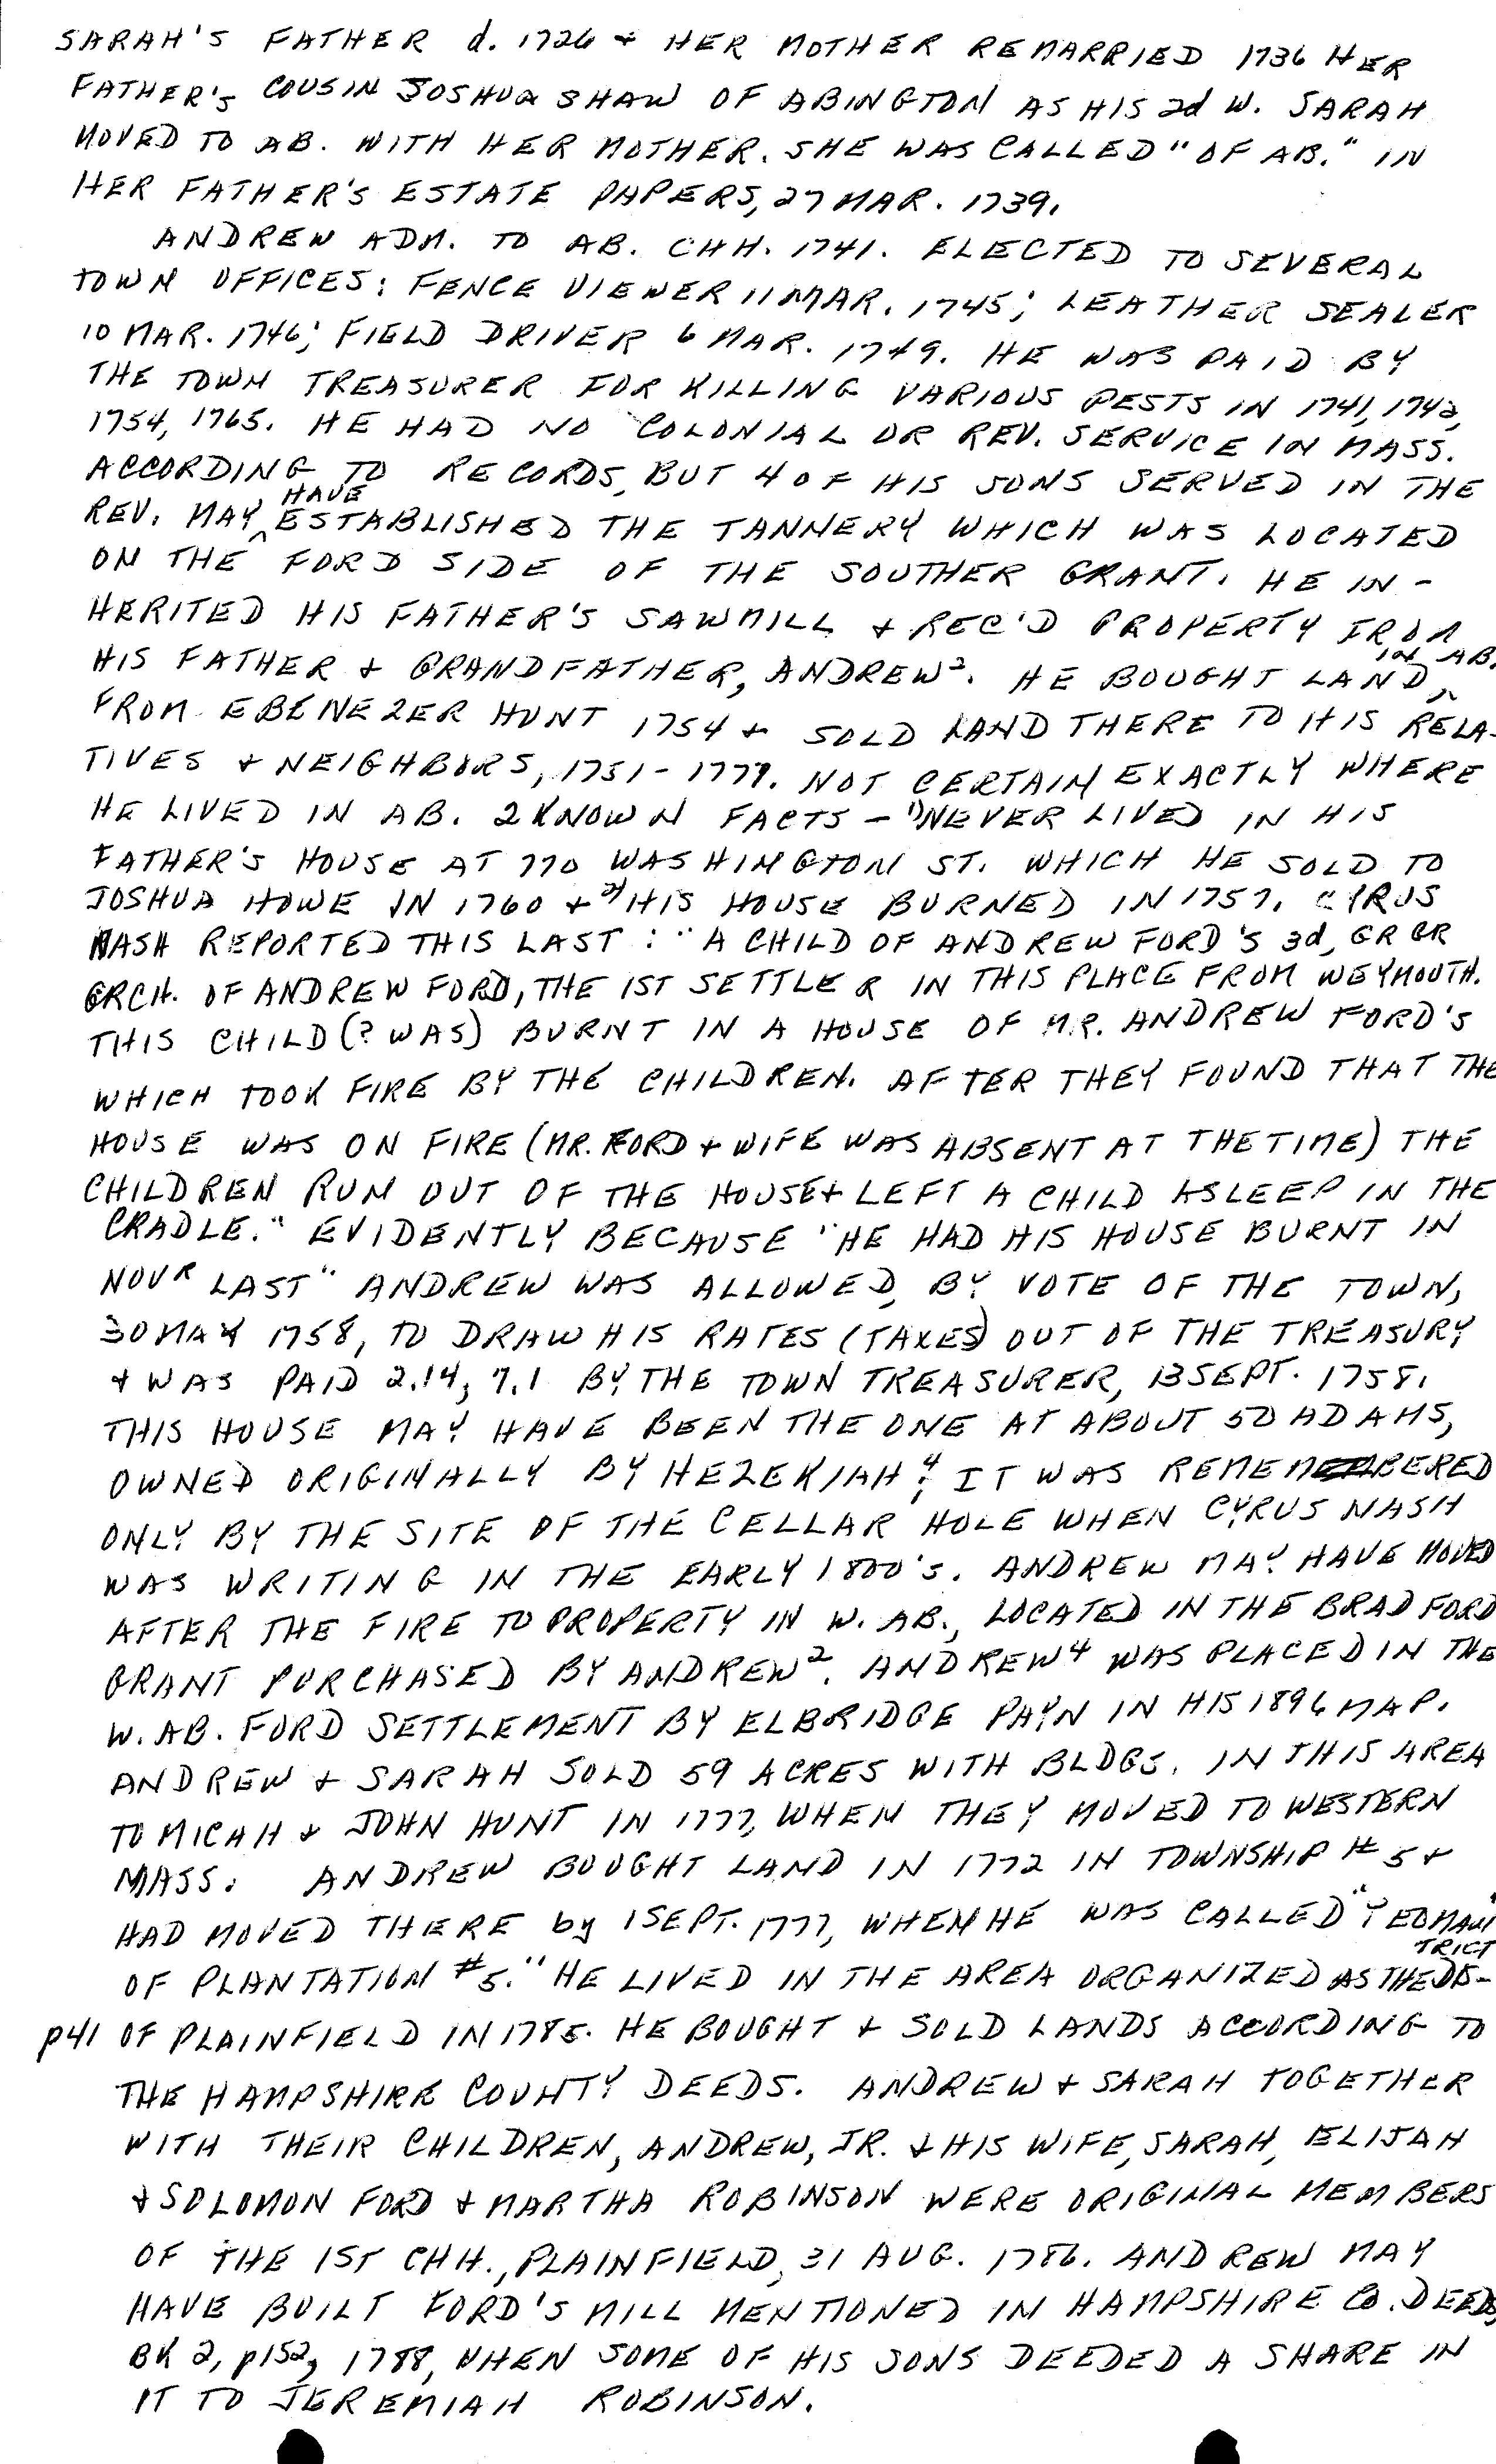 SARAH'S FATHER d. 1726 + HER MOTHER REMARRIED 1736 HER
FATHER'S COUSIN JOSHUA SHAW OF ABINGTON AS HIS 2d W. SARAH
MOVED TO AB. WITH HER MOTHER. SHE WAS CALLED "OF AB." IN
HER FATHER'S ESTATE PAPERS, 27 MAR. 1739.
ANDREW ADM. TO AB. CHH. 1741. ELECTED TO SEVERAL
TOWN OFFICES: FENCE VIEWER 11 MAR. 1745; LEATHER SEALER
10 MAR. 1746; FIELD DRIVER 6 MAR. 1749. HE WAS PAID BY
THE TOWN TREASURER FOR KILLING VARIOUS PESTS IN 1741, 1742,
1754, 1765. HE HAD NO COLONIAL OR REV. SERVICE IN MASS.
ACCORDING TO RECORDS, BUT 4 OF HIS SONS SERVED IN THE
REV. MAY HAVE ESTABLISHED THE TANNERY WHICH WAS LOCATED
ON THE FORD SIDE OF THE SOUTHER GRANT. HE IN-
HERITED HIS FATHER'S SAWMILL + REC'D PROPERTY FROM
HIS FATHER + GRANDFATHER, ANDREW². HE BOUGHT LAND IN AB.
FROM EBENEZER HUNT 1754 + SOLD LAND THERE TO HIS RELA-
TIVES + NEIGHBORS, 1751-1777. NOT CERTAIN EXACTLY WHERE
HE LIVED IN AB. 2 KNOWN FACTS - 1) NEVER LIVED IN HIS
FATHER'S HOUSE AT 770 WASHINGTON ST. WHICH HE SOLD TO
JOSHUA HOWE IN 1760 + 2) HIS HOUSE BURNED IN 1757. CYRUS
NASH REPORTED THIS LAST: "A CHILD OF ANDREW FORD'S 3d, GR GR
GRCH. OF ANDREW FORD, THE 1ST SETTLER IN THIS PLACE FROM WEYMOUTH.
THIS CHILD (? WAS) BURNT IN A HOUSE OF MR. ANDREW FORD'S
WHICH TOOK FIRE BY THE CHILDREN. AFTER THEY FOUND THAT THE
HOUSE WAS ON FIRE (MR. FORD + WIFE WAS ABSENT AT THE TIME) THE
CHILDREN RUN OUT OF THE HOUSE + LEFT A CHILD ASLEEP IN THE
CRADLE." EVIDENTLY BECAUSE "HE HAD HIS HOUSE BURNT IN
NOVR LAST" ANDREW WAS ALLOWED, BY VOTE OF THE TOWN,
30 MAY 1758, TO DRAW HIS RATES (TAXES) OUT OF THE TREASURY
+ WAS PAID 2.14, 7.1 BY THE TOWN TREASURER, 13 SEPT. 1758.
THIS HOUSE MAY HAVE BEEN THE ONE AT ABOUT 50 ADAMS,
OWNED ORIGINALLY BY HEZEKIAH⁴; IT WAS REMEMBERED
ONLY BY THE SITE OF THE CELLAR HOLE WHEN CYRUS NASH
WAS WRITING IN THE EARLY 1800'S. ANDREW MAY HAVE MOVED
AFTER THE FIRE TO PROPERTY IN W. AB., LOCATED IN THE BRADFORD
GRANT PURCHASED BY ANDREW². ANDREW⁴ WAS PLACED IN THE
W. AB. FORD SETTLEMENT BY ELBRIDGE PAYN IN HIS 1896 MAP.
ANDREW + SARAH SOLD 59 ACRES WITH BLDGS. IN THIS AREA
TO MICAH + JOHN HUNT IN 1777, WHEN THEY MOVED TO WESTERN
MASS. ANDREW BOUGHT LAND IN 1772 IN TOWNSHIP #5 +
HAD MOVED THERE by 1 SEPT. 1777, WHEN HE WAS CALLED "YEOMAN"
OF PLANTATION #5." HE LIVED IN THE AREA ORGANIZED AS THE DISTRICT
p41 OF PLAINFIELD IN 1785. HE BOUGHT + SOLD LANDS ACCORDING TO
THE HAMPSHIRE COUNTY DEEDS. ANDREW + SARAH TOGETHER
WITH THEIR CHILDREN, ANDREW, JR. + HIS WIFE, SARAH, ELIJAH
+ SOLOMON FORD + MARTHA ROBINSON WERE ORIGINAL MEMBERS
OF THE 1ST CHH., PLAINFIELD, 31 AUG. 1786. ANDREW MAY
HAVE BUILT FORD'S MILL MENTIONED IN HAMPSHIRE CO. DEEDS,
BK 2, p152, 1788, WHEN SOME OF HIS SONS DEEDED A SHARE IN
IT TO JEREMIAH ROBINSON.